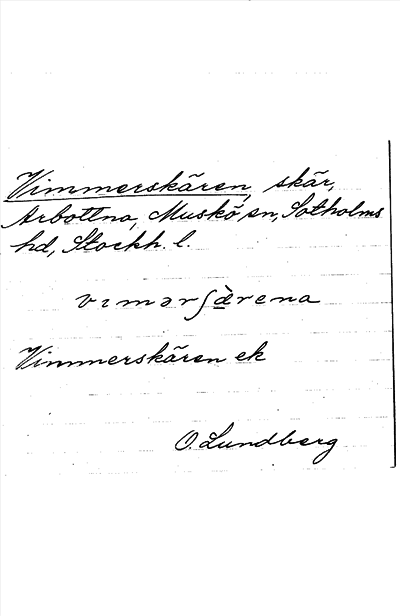 Vimmerskären, skär,
Arbottna, Muskö sn, Sotholms
hd, Stockh. l.
vɪmərʃæ̀rena
Vimmerskären ek
O. Lundberg